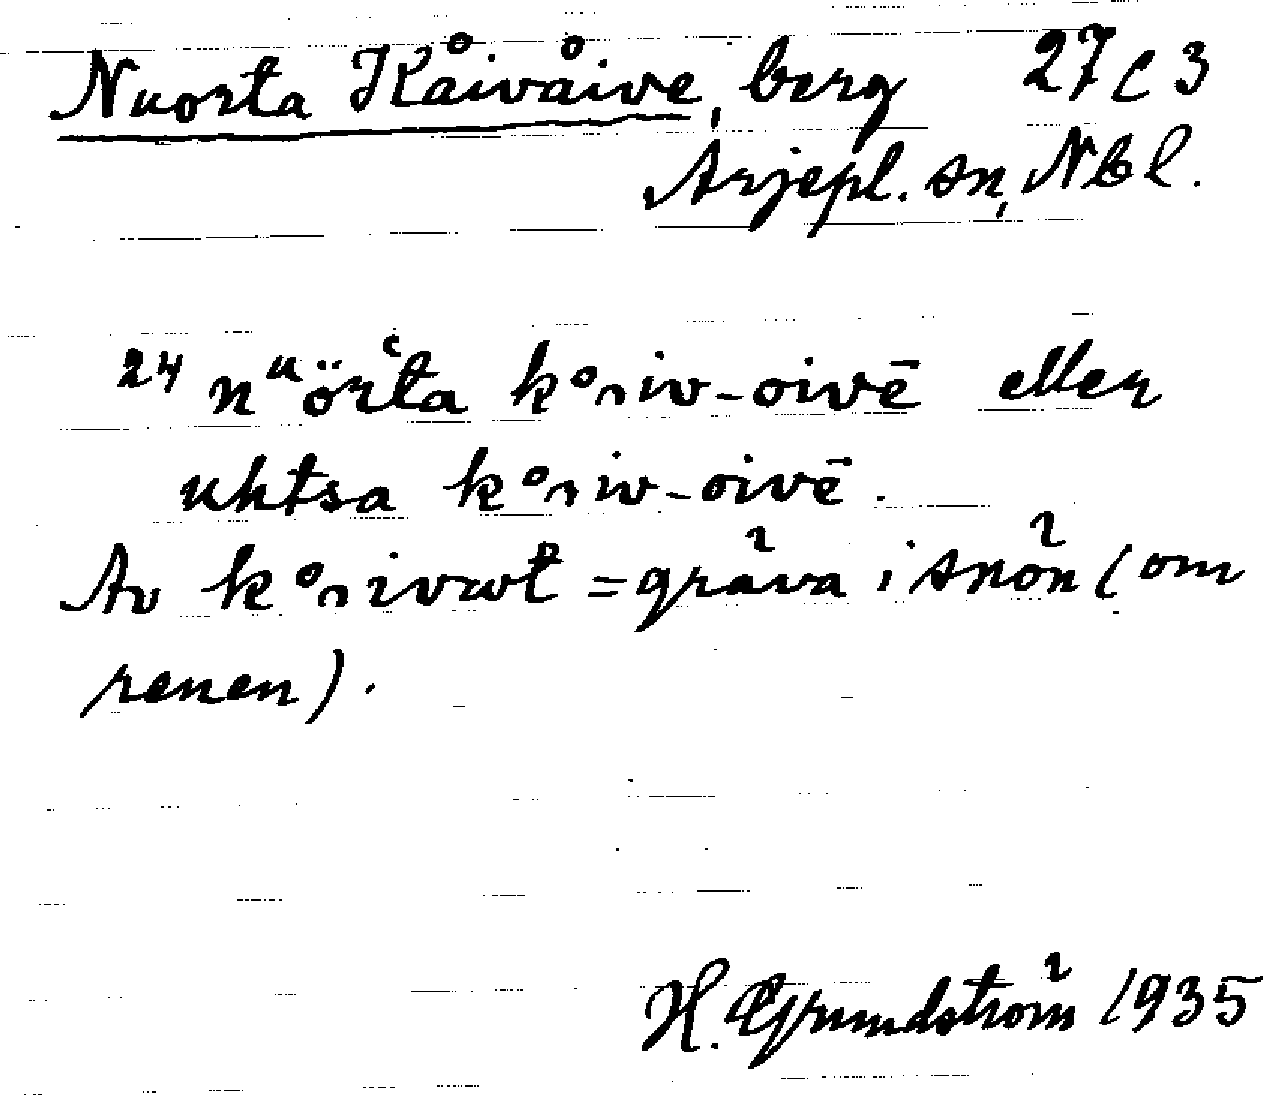 Nuorta Kåivåive, berg 27C3
Arjepl. sn, Nbl.
24 nᵘörʻta k°ɿiw-oivē eller
uhtsa k°ɿiw-oivē.
Av k°ɿivɯt = gräva i snön (om
renen).
H. Grundström 1935